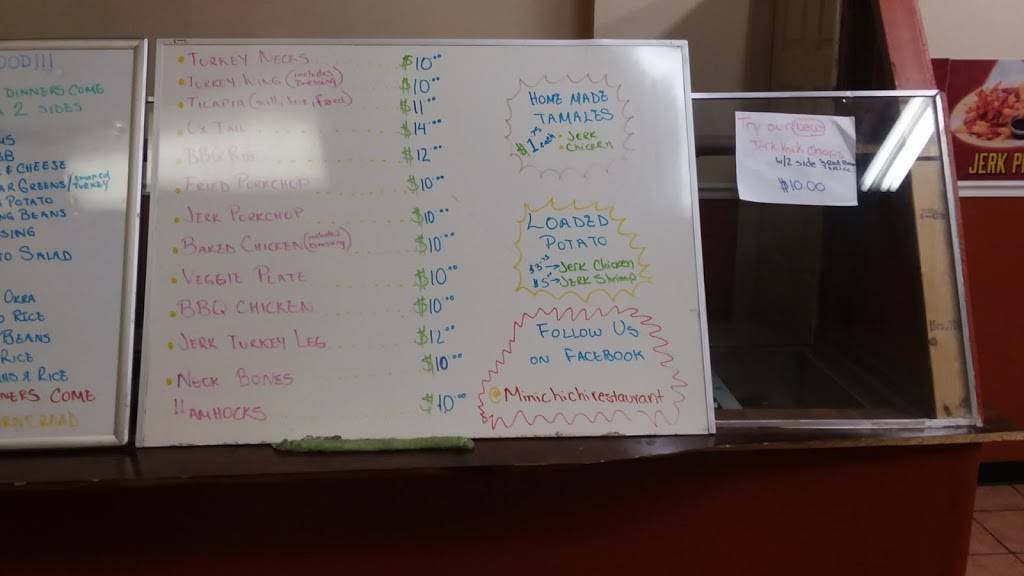 DINNERS COME
2 SIDES
& CHEESE
GREENS/smoked TURKEY
POTATO
BEANS
SALAD
OKRA
RICE
BEANS
RICE
& RICE
COME
ROAD
• TURKEY NECKS $10.00
• TURKEY WING (includes Dressing) $10.00
• TILAPIA (Grill, Jerk, Fried) $11.00
• OX TAIL $14.00
• BBQ RIB $12.00
• FRIED PORKCHOP $10.00
• JERK PORKCHOP $10.00
• BAKED CHICKEN (includes Dressing) $10.00
• VEGGIE PLATE $10.00
• BBQ CHICKEN $10.00
• JERK TURKEY LEG $12.00
• NECK BONES $10.00
HAMHOCKS $10.00
HOME MADE
TAMALES
$1.75 each • JERK
• CHICKEN
LOADED
POTATO
→ JERK Chicken
→ JERK Shrimp
FOLLOW US
ON FACEBOOK
@Mimichichirestaurant
Try our New
Jerk Pork Chops
w/2 side
$10.00
JERK